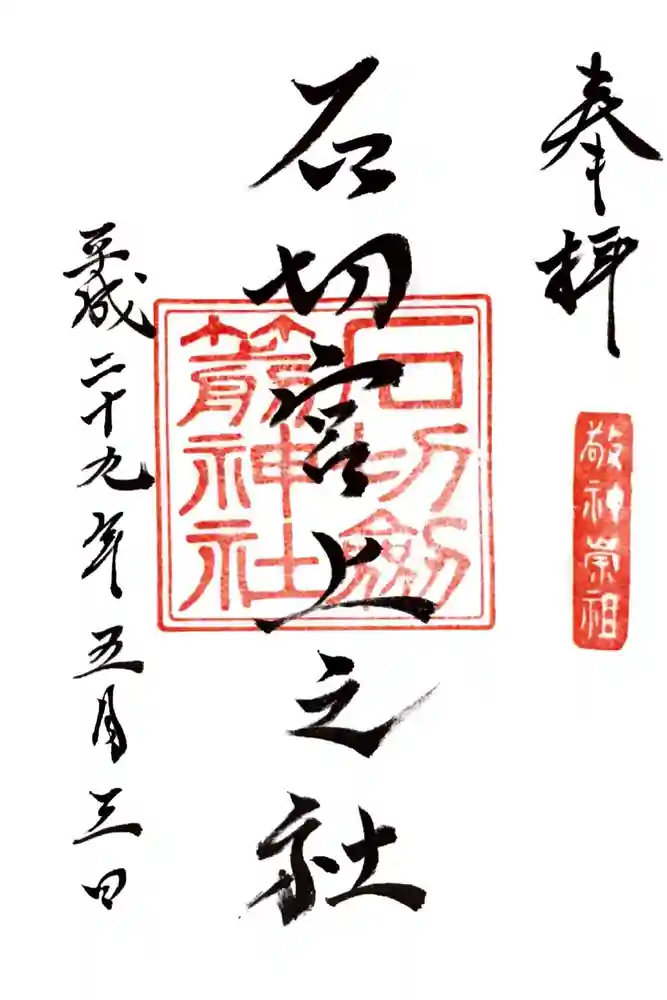 奉拝
敬神崇祖
石切宮上之社
石切劔箭神社
平成二十九年五月三日